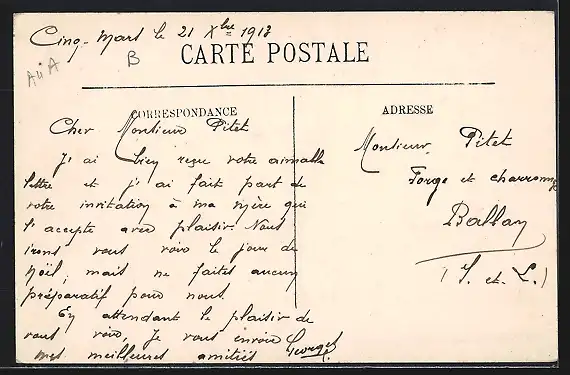 Cinq-Mars le 21 Xbre 1913
B
CARTE POSTALE
CORRESPONDANCE
Cher Monsieur Pitet
J'ai bien reçue votre aimable
lettre et j'ai fait part de
votre invitation à ma mère qui
l'accepte avec plaisir. Nous
irons vous voir le jour de
Noël, mais ne faites aucun
préparatif pour nous.
En attendant le plaisir de
vous voir, Je vous envoie
mes meilleures amitiés Georges
ADRESSE
Monsieur Pitet
Forge et charronage
Ballan
(I. et L.)